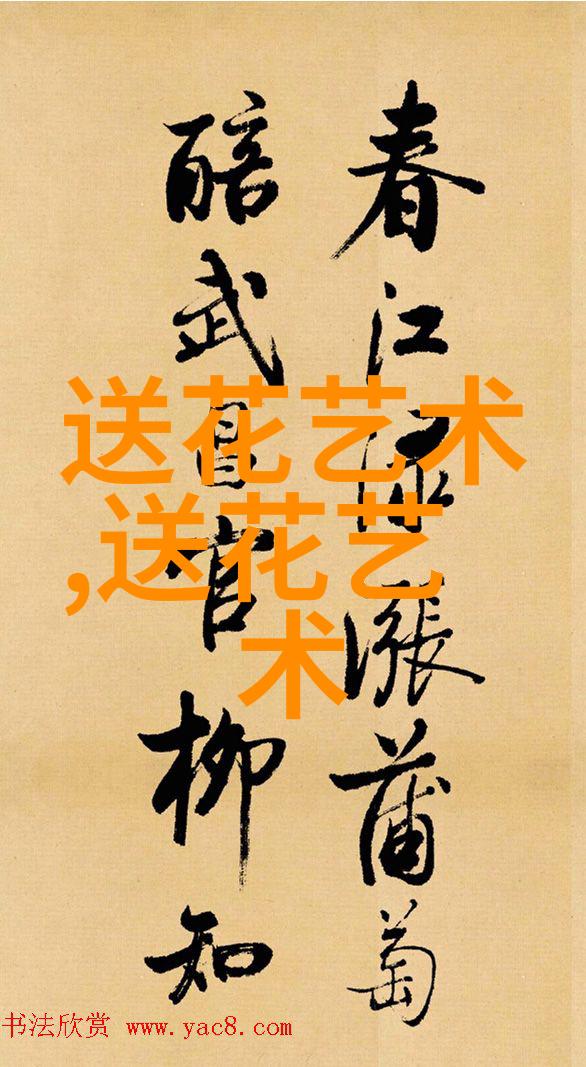 春江渌漲蒲萄
醅武昌官柳知
送花艺术
,送花艺
术
书法欣赏 www.yac8.com